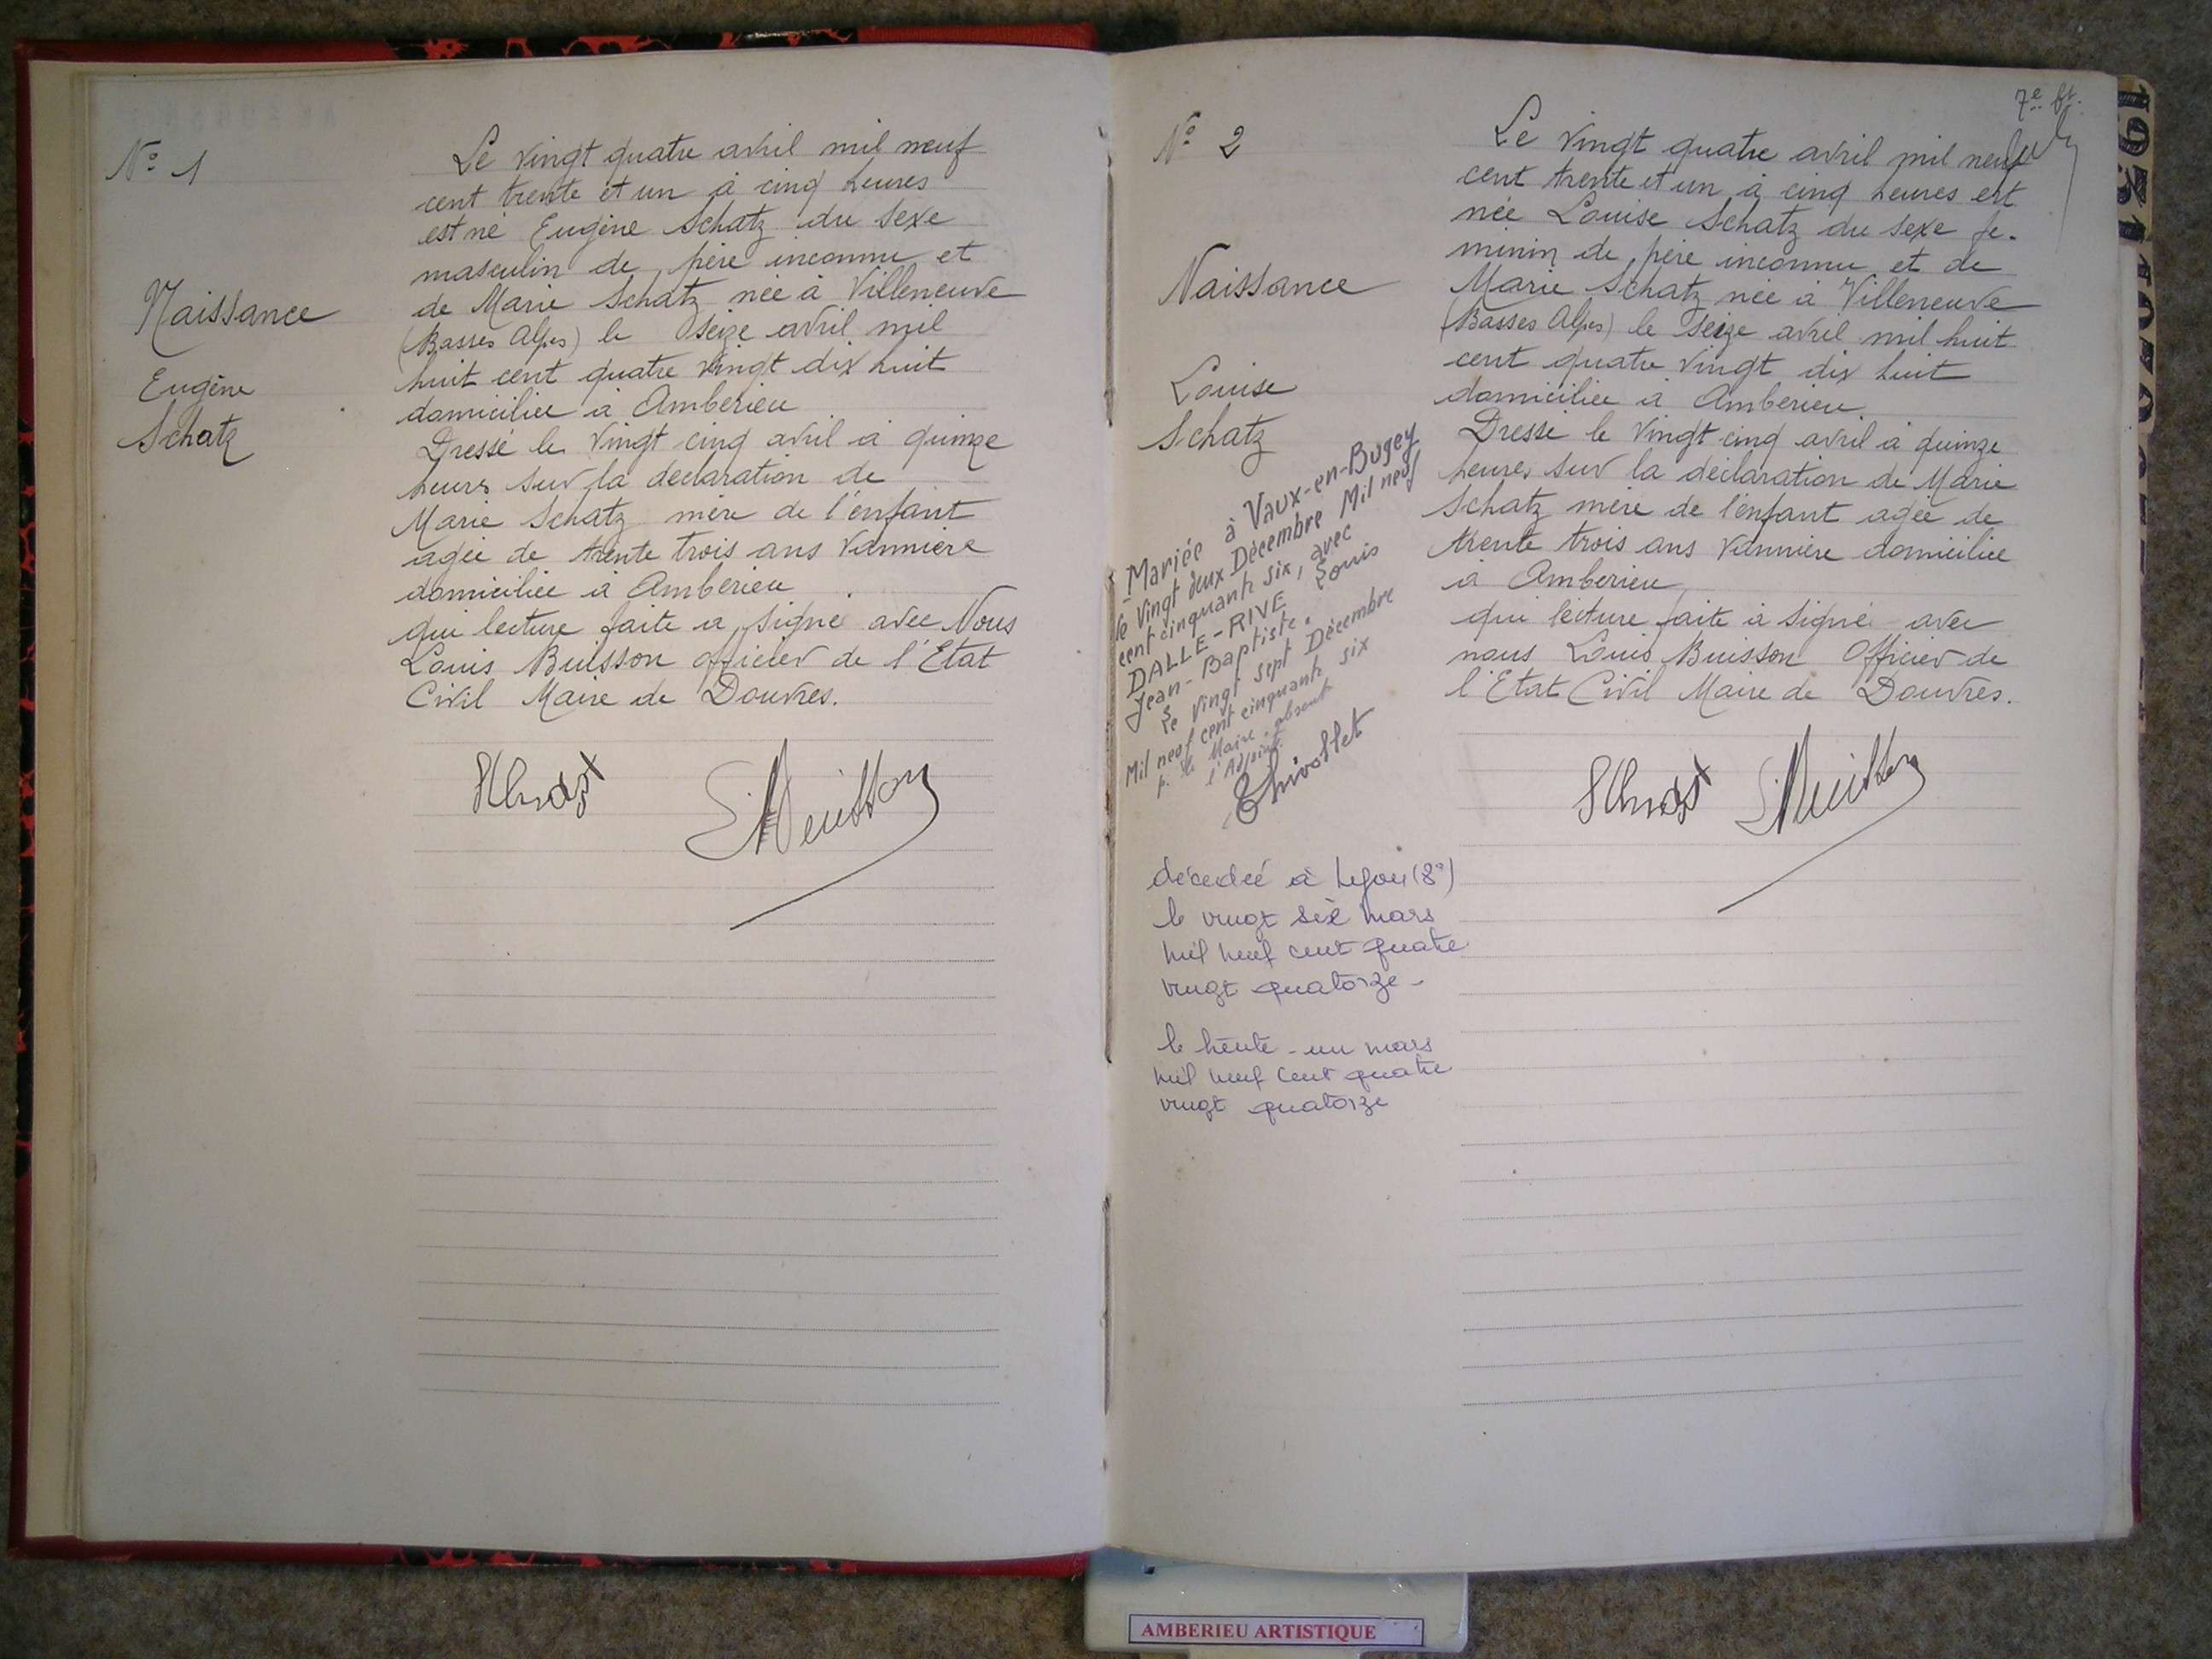 N° 1
Naissance
Eugène
Schatz
Le vingt quatre avril mil neuf
cent trente et un à cinq heures
est né Eugène Schatz du sexe
masculin de père inconnu et
de Marie Schatz née à Villeneuve
(Basses Alpes) le seize avril mil
huit cent quatre vingt dix huit
domiciliée à Ambérieu
Dressé le vingt cinq avril à quinze
heures sur la déclaration de
Marie Schatz mère de l'enfant
agée de trente trois ans vannière
domiciliée à Ambérieu
qui lecture faite a signé avec Nous
Louis Buisson officier de l'Etat
Civil Maire de Douvres.
N° 2
Naissance
Louise
Schatz
Mariée à Vaux-en-Bugey
le vingt deux Décembre Mil neuf
cent cinquante six, avec
DALLE-RIVE Louis
Jean-Baptiste.
Le vingt sept Décembre
Mil neuf cent cinquante six
p. le Maire absent
l'Adjoint.
Thivollet
décedée à Lyon (8°)
le vingt six mars
mil neuf cent quatre
vingt quatorze -
le trente - un mars
mil neuf cent quatre
vingt quatorze
7e ft.
Le vingt quatre avril mil neuf
cent trente et un à cinq heures est
née Louise Schatz du sexe fe-
minin de père inconnu et de
Marie Schatz née à Villeneuve
(Basses Alpes) le seize avril mil huit
cent quatre vingt dix huit
domiciliée à Ambérieu.
Dressé le vingt cinq avril à quinze
heures sur la déclaration de Marie
Schatz mère de l'enfant agée de
trente trois ans vannière domiciliée
à Ambérieu
qui lecture faite a signé avec
nous Louis Buisson Officier de
l'Etat Civil Maire de Douvres.
1931
AMBERIEU ARTISTIQUE